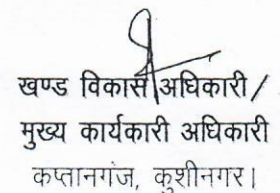 खण्ड विकास अधिकारी/
मुख्य कार्यकारी अधिकारी
कप्तानगंज, कुशीनगर।